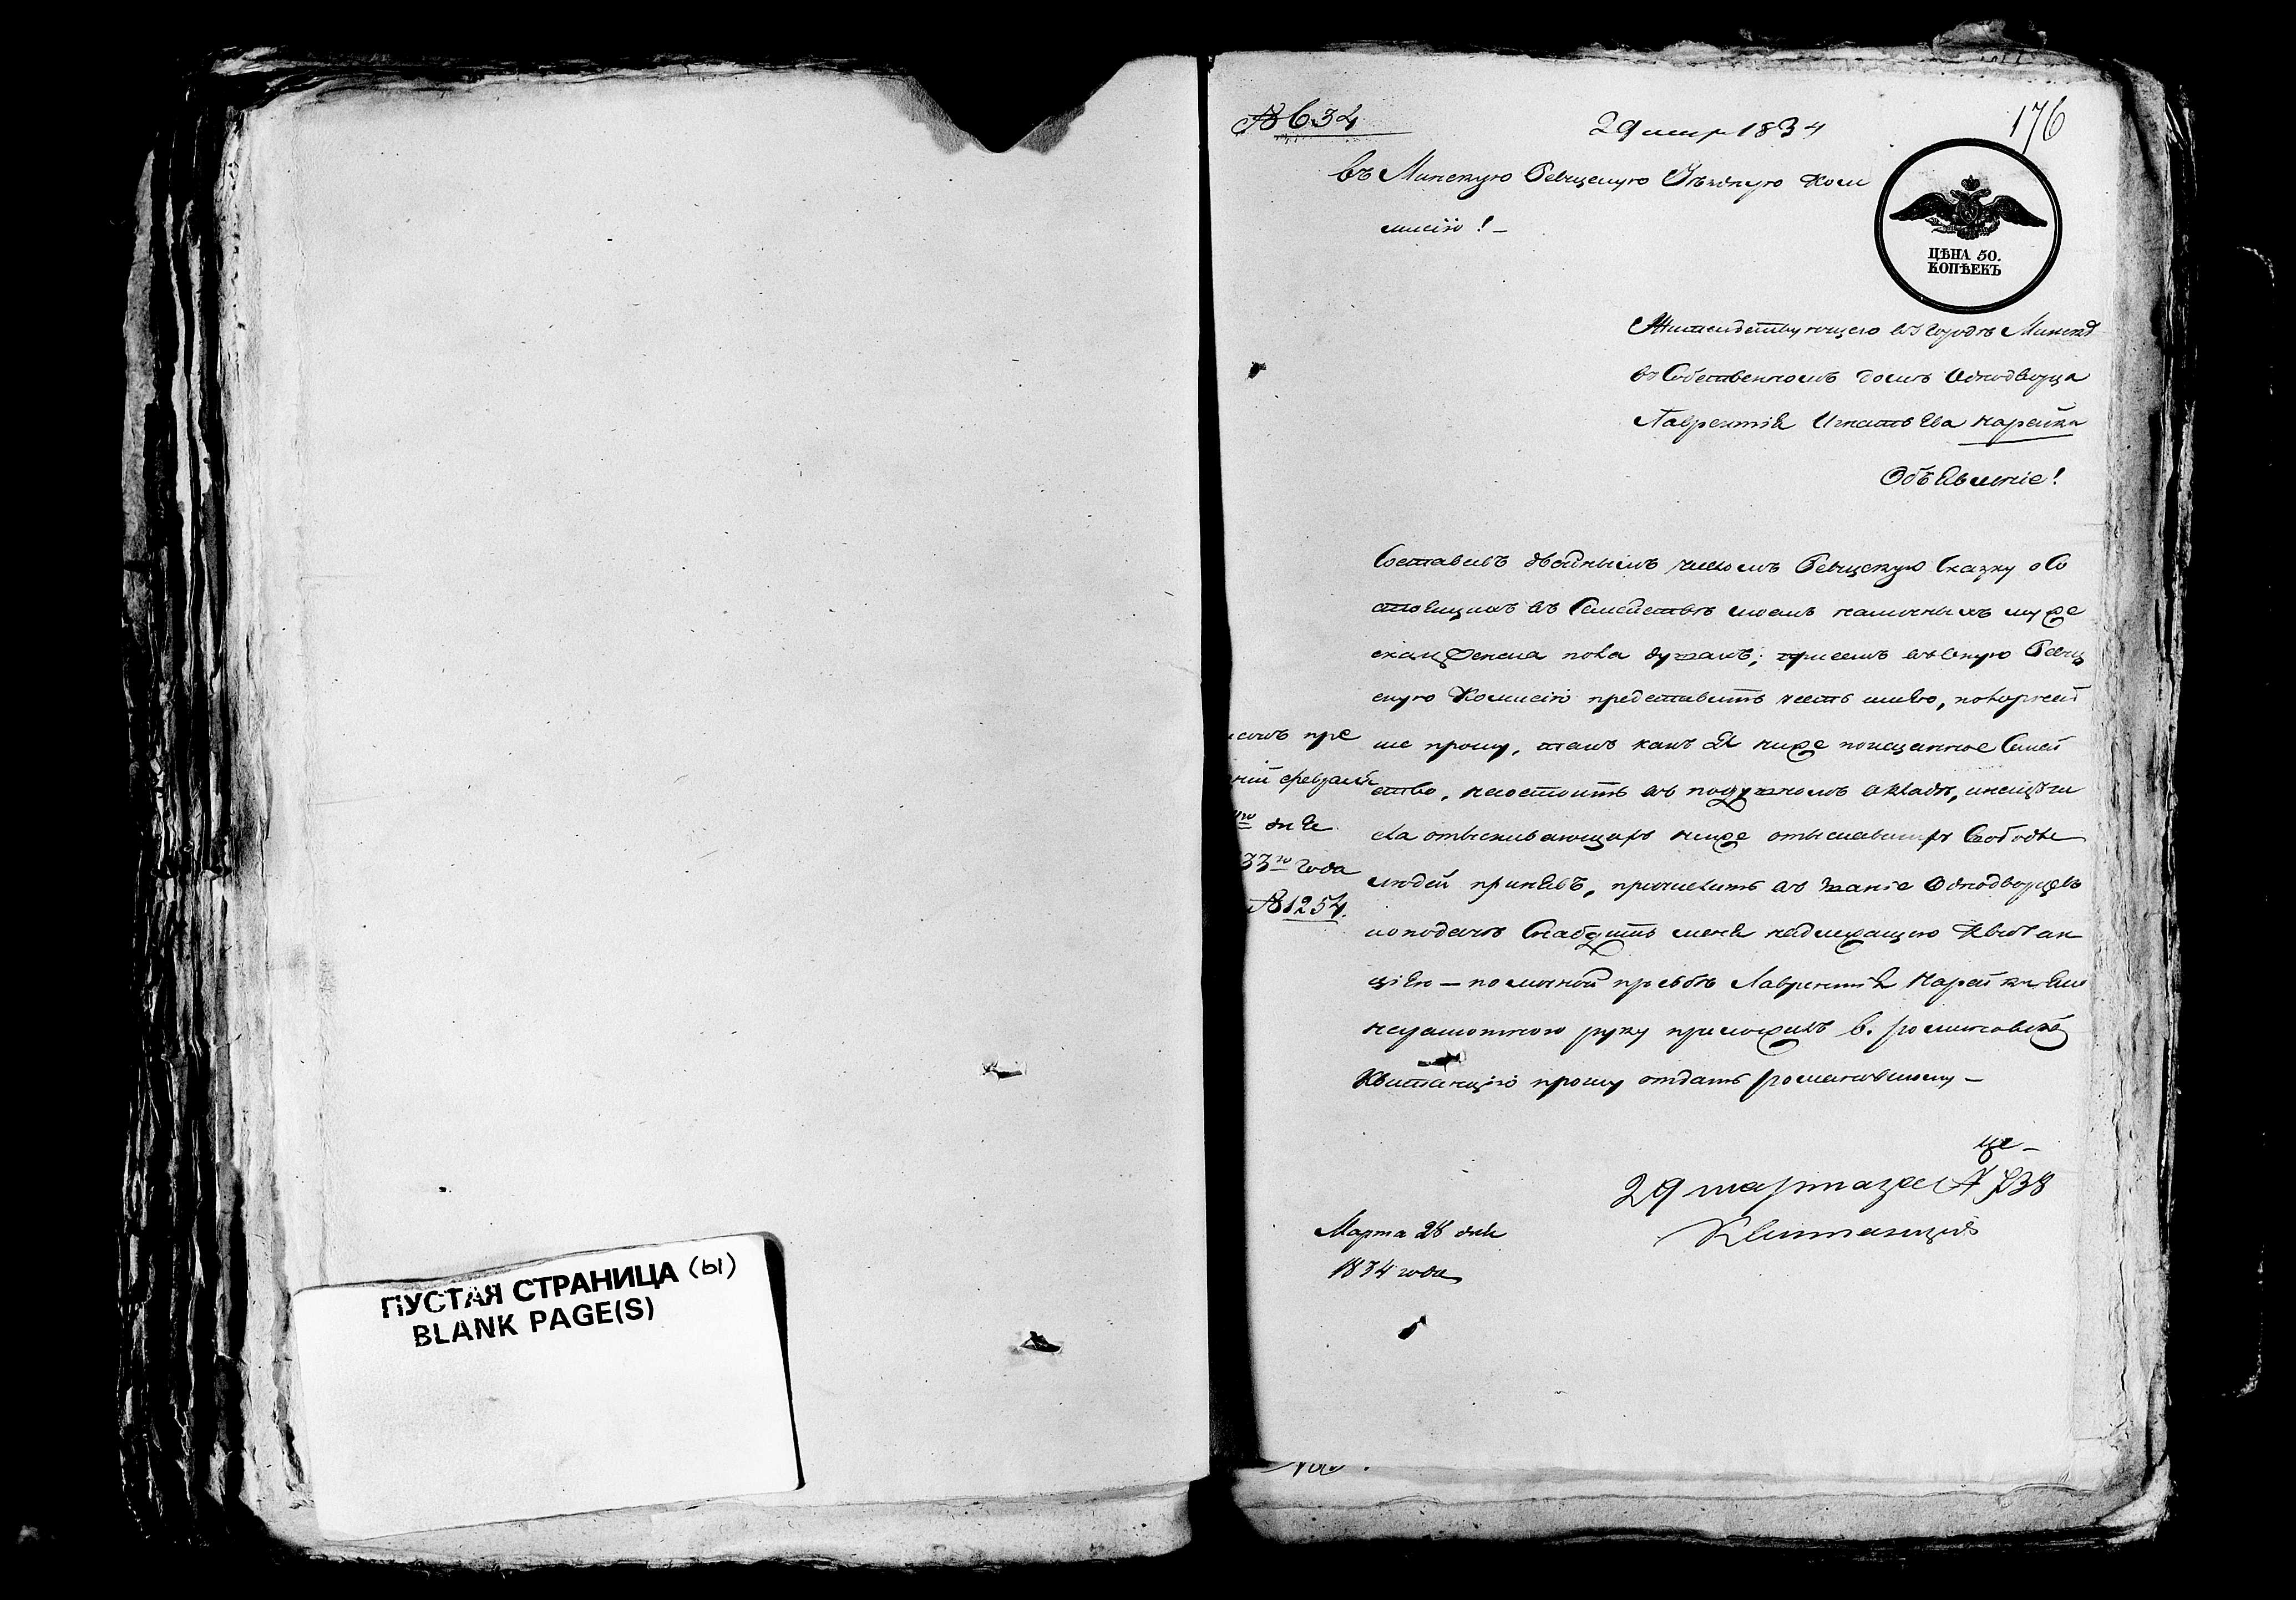 № 634
29 мар 1834
176
въ Минскую Ревизскую Уѣздную Ком
мисію! —
ЦѢНА 50.
КОПѢЕКЪ
Жительствующего въ городѣ Минскѣ
въ Собственномъ домѣ Однодворца
Лаврентія Игнатьева Карейки
Объявленіе!
Составивъ двойнымъ числомъ Ревизскую Сказку о Со
стоящихъ въ Семействѣ моемъ наличныхъ муже
ска и женска пола душахъ; при семъ въ оную Ревиз
скую Комисію представить честь имѣю, покорней
ше прошу, такъ какъ я ниже помязанное Семей
ство, не состоитъ въ подушномъ окладѣ,
отыскивающихъ ниже отыскавшихъ Свободы
людей принявъ, причислить въ званіе Однодворцевъ
и о подачѣ Снабдить меня надлежащею Квитан
ціею — по личной прозьбѣ Лаврентія Карейки яко
неграмотного руку приложилъ В. Романовскій
Квитанцію прошу отдать Романовскому —
симъ пре
ній февраля
го дня
33го года
№ 1254.
29 марта за № 738
Квитанція
Марта 28 дня
1834 года
ПУСТАЯ СТРАНИЦА (Ы)
BLANK PAGE(S)